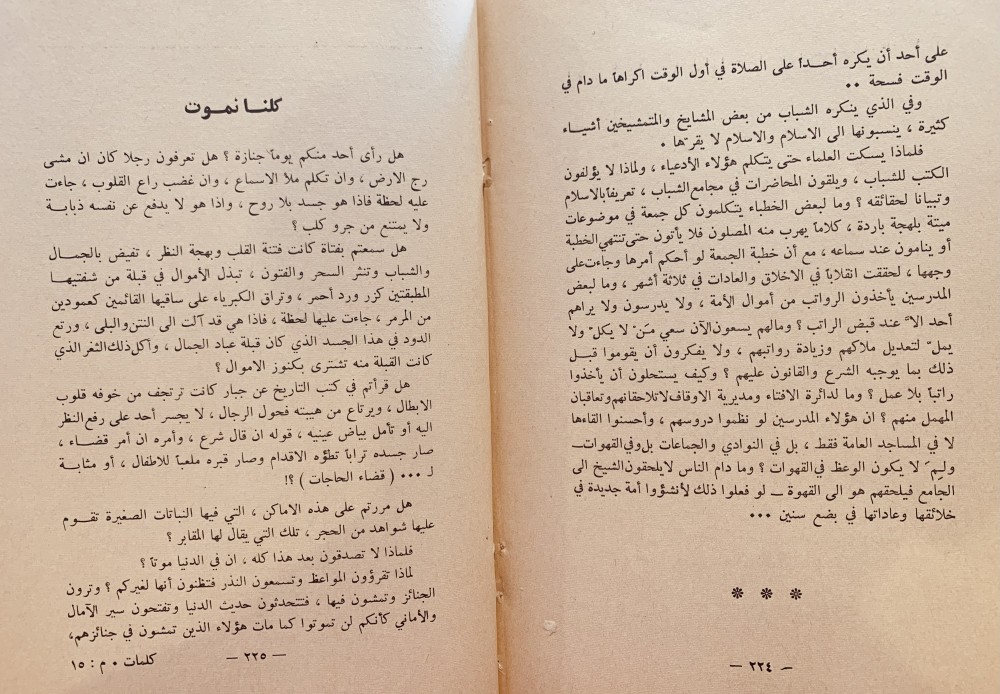 على أحد أن يكره أحـــداً على الصلاة في أول الوقت اكراهاً ما دام في
الوقت فسحة ••
وفي الذي ينكره الشباب من بعض المشايخ والمتمشيخين أشيـــاء
كثيرة ، ينسبونها الى الاسلام والاسلام لا يقرّها •
فلماذا يسكت العلماء حتى يتكلم هؤلاء الأدعياء ، ولماذا لا يؤلفون
الكتب للشباب ، ويلقون المحاضرات في مجامع الشباب ، تعريفاً بالاسلام
وتبيانا لحقائقه ؟ وما لبعض الخطباء يتكلمون كل جمعة في موضوعات
ميتة بلهجة باردة ، كلاماً يهرب منه المصلون فلا يأتون حتى تنتهي الخطبة
أو ينامون عند سماعه ، مع أن خطبة الجمعة لو أحكم أمرها وجاءت على
وجهها ، لحققت انقلاباً في الاخلاق والعادات في ثلاثة أشهر ، وما لبعض
المدرسين يأخذون الرواتب من أموال الأمة ، ولا يدرسون ولا يراهم
أحد الاّ عند قبض الراتب ؟ ومالهم يسعون الآن سعي مَن ْ لا يكلّ ولا
يملّ لتعديل ملاكهم وزيادة رواتبهم ، ولا يفكرون أن يقوموا قبـــل
ذلك بما يوجبه الشرع والقانون عليهم ؟ وكيف يستحلون أن يأخذوا
راتباً بلا عمل ؟ وما لدائرة الافتاء ومديرية الاوقاف لا تلاحقانهم وتعاقبان
المهمل منهم ؟ ان هؤلاء المدرسين لو نظموا دروسهم ، وأحسنوا القاءها
لا في المساجد العامة فقط ، بل في النوادي والجماعات بل وفي القهوات ــ
ولـِم َ لا يكون الوعظ في القهوات ؟ وما دام الناس لا يلحقون الشيخ الى
الجامع فيلحقهم هو الى القهوة ــ لو فعلوا ذلك لأنشؤوا أمة جديدة في
خلائقها وعاداتها في بضع سنين •••
* * *
— ٢٢٤ —
كلنا نموت
هل رأى أحد منكم يوماً جنازة ؟ هل تعرفون رجلا كان ان مشى
رج الارض ، وان تكلم ملأ الاسماع ، وان غضب راع القلوب ، جاءت
عليه لحظة فاذا هو جسد بلا روح ، واذا هو لا يدفع عن نفسه ذبابة
ولا يمتنع من جرو كلب ؟
هل سمعتم بفتاة كانت فتنة القلب وبهجة النظر ، تفيض بالجمـــال
والشباب وتنثر السحر والفتون ، تبذل الأموال في قبلة من شفتيهـــا
المطبقتين كزر ورد أحمر ، وتراق الكبرياء على ساقيها القائمين كعمودين
من المرمر ، جاءت عليها لحظة ، فاذا هي قد آلت الى النتن والبلى ، ورتع
الدود في هذا الجسد الذي كان قبلة عباد الجمال ، وأكل ذلك الثغر الذي
كانت القبلة منه تشترى بكنوز الاموال ؟
هل قرأتم في كتب التاريخ عن جبار كانت ترتجف من خوفه قلوب
الابطال ، ويرتاع من هيبته فحول الرجال ، لا يجسر أحد على رفع النظر
اليه أو تأمل بياض عينيه ، قوله ان قال شرع ، وأمره ان أمر قضـاء ،
صار جسده تراباً تطؤه الاقدام وصار قبره ملعباً للاطفال ، أو مثابـــة
لـ ••• ( قضاء الحاجات ) ؟!
هل مررتم على هذه الاماكن ، التي فيها النباتات الصغيرة تقـــوم
عليها شواهد من الحجر ، تلك التي يقال لها المقابر ؟
فلماذا لا تصدقون بعد هذا كله ، ان في الدنيا موتاً ؟
لماذا تقرؤون المواعظ وتسمعون النذر فتظنون أنها لغيركم ؟ وترون
الجنائز وتمشون فيها ، فتتحدثون حديث الدنيا وتفتحون سير الآمال
والأماني كأنكم لن تموتوا كما مات هؤلاء الذين تمشون في جنائزهم،
— ٢٢٥ —
كلمات • م : ١٥